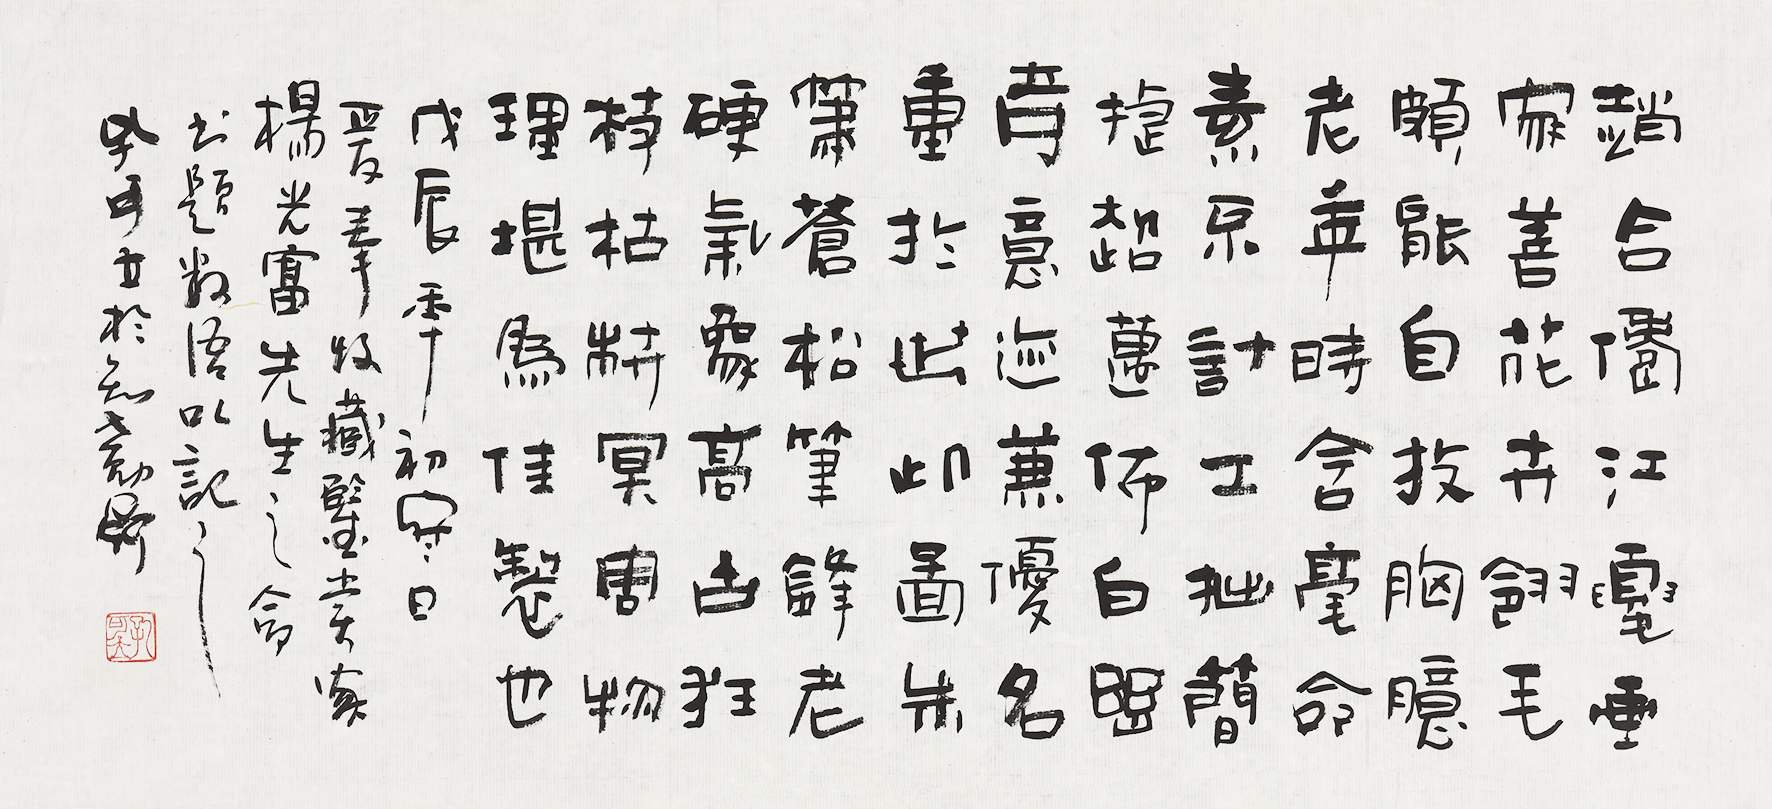 趙江垂
家善花卉翎毛
頗能自放胸臆
老年時含毫命
素不計工拙簡
捷超邁佈白照
章意迹兼優名
重於世此圖朱
蒼松筆鋒老
硬氣象高古狂
枝枯枿冥周物
理堪為佳製也
戊辰季初冬日
爰奉收藏鑒賞家
楊光富先生之命
書題數語以記之
孔可立於知